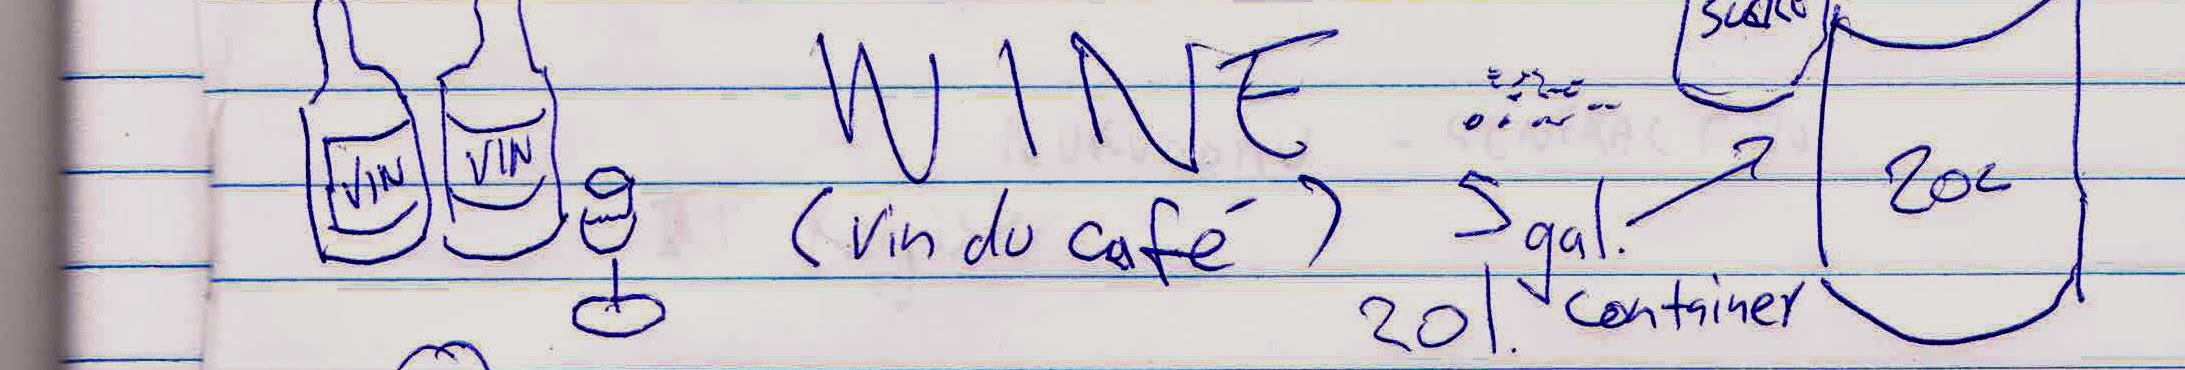 VIN
VIN
WINE
(vin du café)
5 gal.
20 l. container
20L